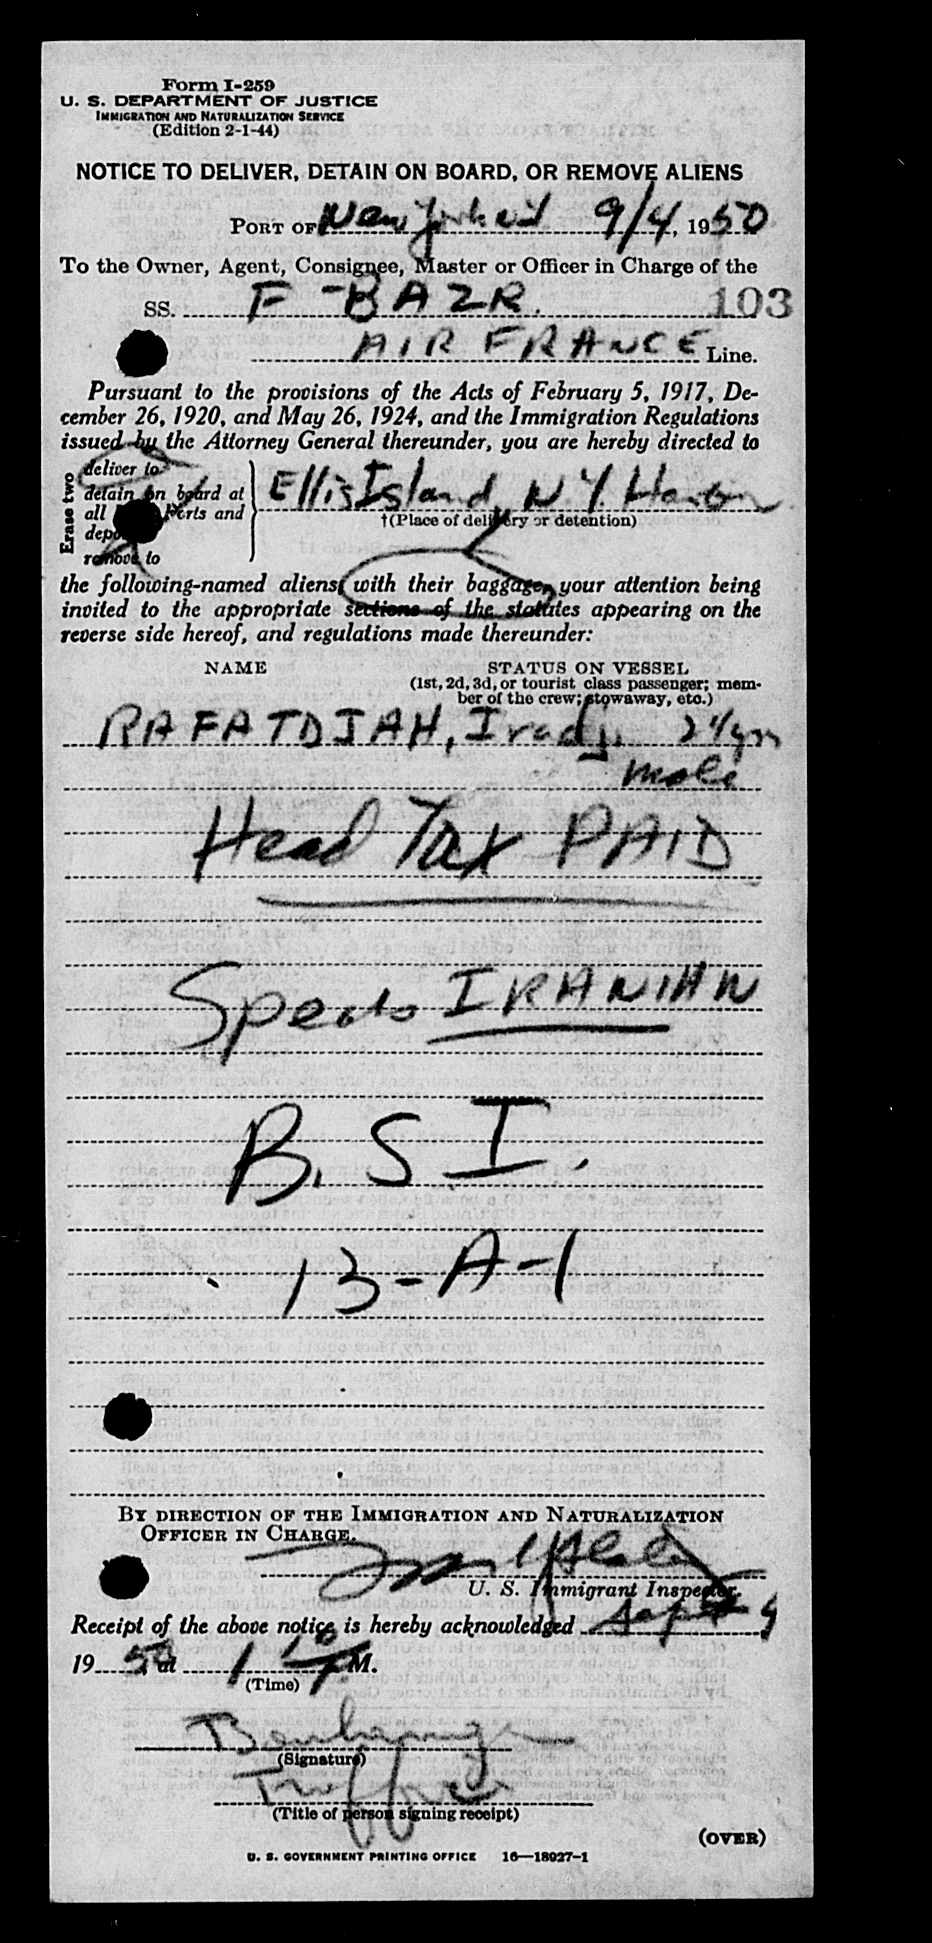 Form I-259
U. S. DEPARTMENT OF JUSTICE
IMMIGRATION AND NATURALIZATION SERVICE
(Edition 2-1-44)
NOTICE TO DELIVER, DETAIN ON BOARD, OR REMOVE ALIENS
PORT OF New York NY 9/4, 1950
To the Owner, Agent, Consignee, Master or Officer in Charge of the
SS. F-BAZR. 103
AIR FRANCE Line.
Pursuant to the provisions of the Acts of February 5, 1917, De-
cember 26, 1920, and May 26, 1924, and the Immigration Regulations
issued by the Attorney General thereunder, you are hereby directed to
Erase two
deliver to
detain on board at
all ports and
remove to
Ellis Island N.Y. Harbor
†(Place of delivery or detention)
the following-named aliens, with their baggage, your attention being
invited to the appropriate sections of the statutes appearing on the
reverse side hereof, and regulations made thereunder:
NAME STATUS ON VESSEL
(1st, 2d, 3d, or tourist class passenger; mem-
ber of the crew; stowaway, etc.)
RAFATDJAH, Iradj. 24 yrs
male
Head Tax PAID
Speaks IRANIAN
B. S I.
13-A-1
BY DIRECTION OF THE IMMIGRATION AND NATURALIZATION
OFFICER IN CHARGE.
U. S. Immigrant Inspector.
Receipt of the above notice is hereby acknowledged Sept 4
1950 at 1 10 PM.
(Time)
(Signature)
(Title of person signing receipt)
(OVER)
U. S. GOVERNMENT PRINTING OFFICE 16—18927-1